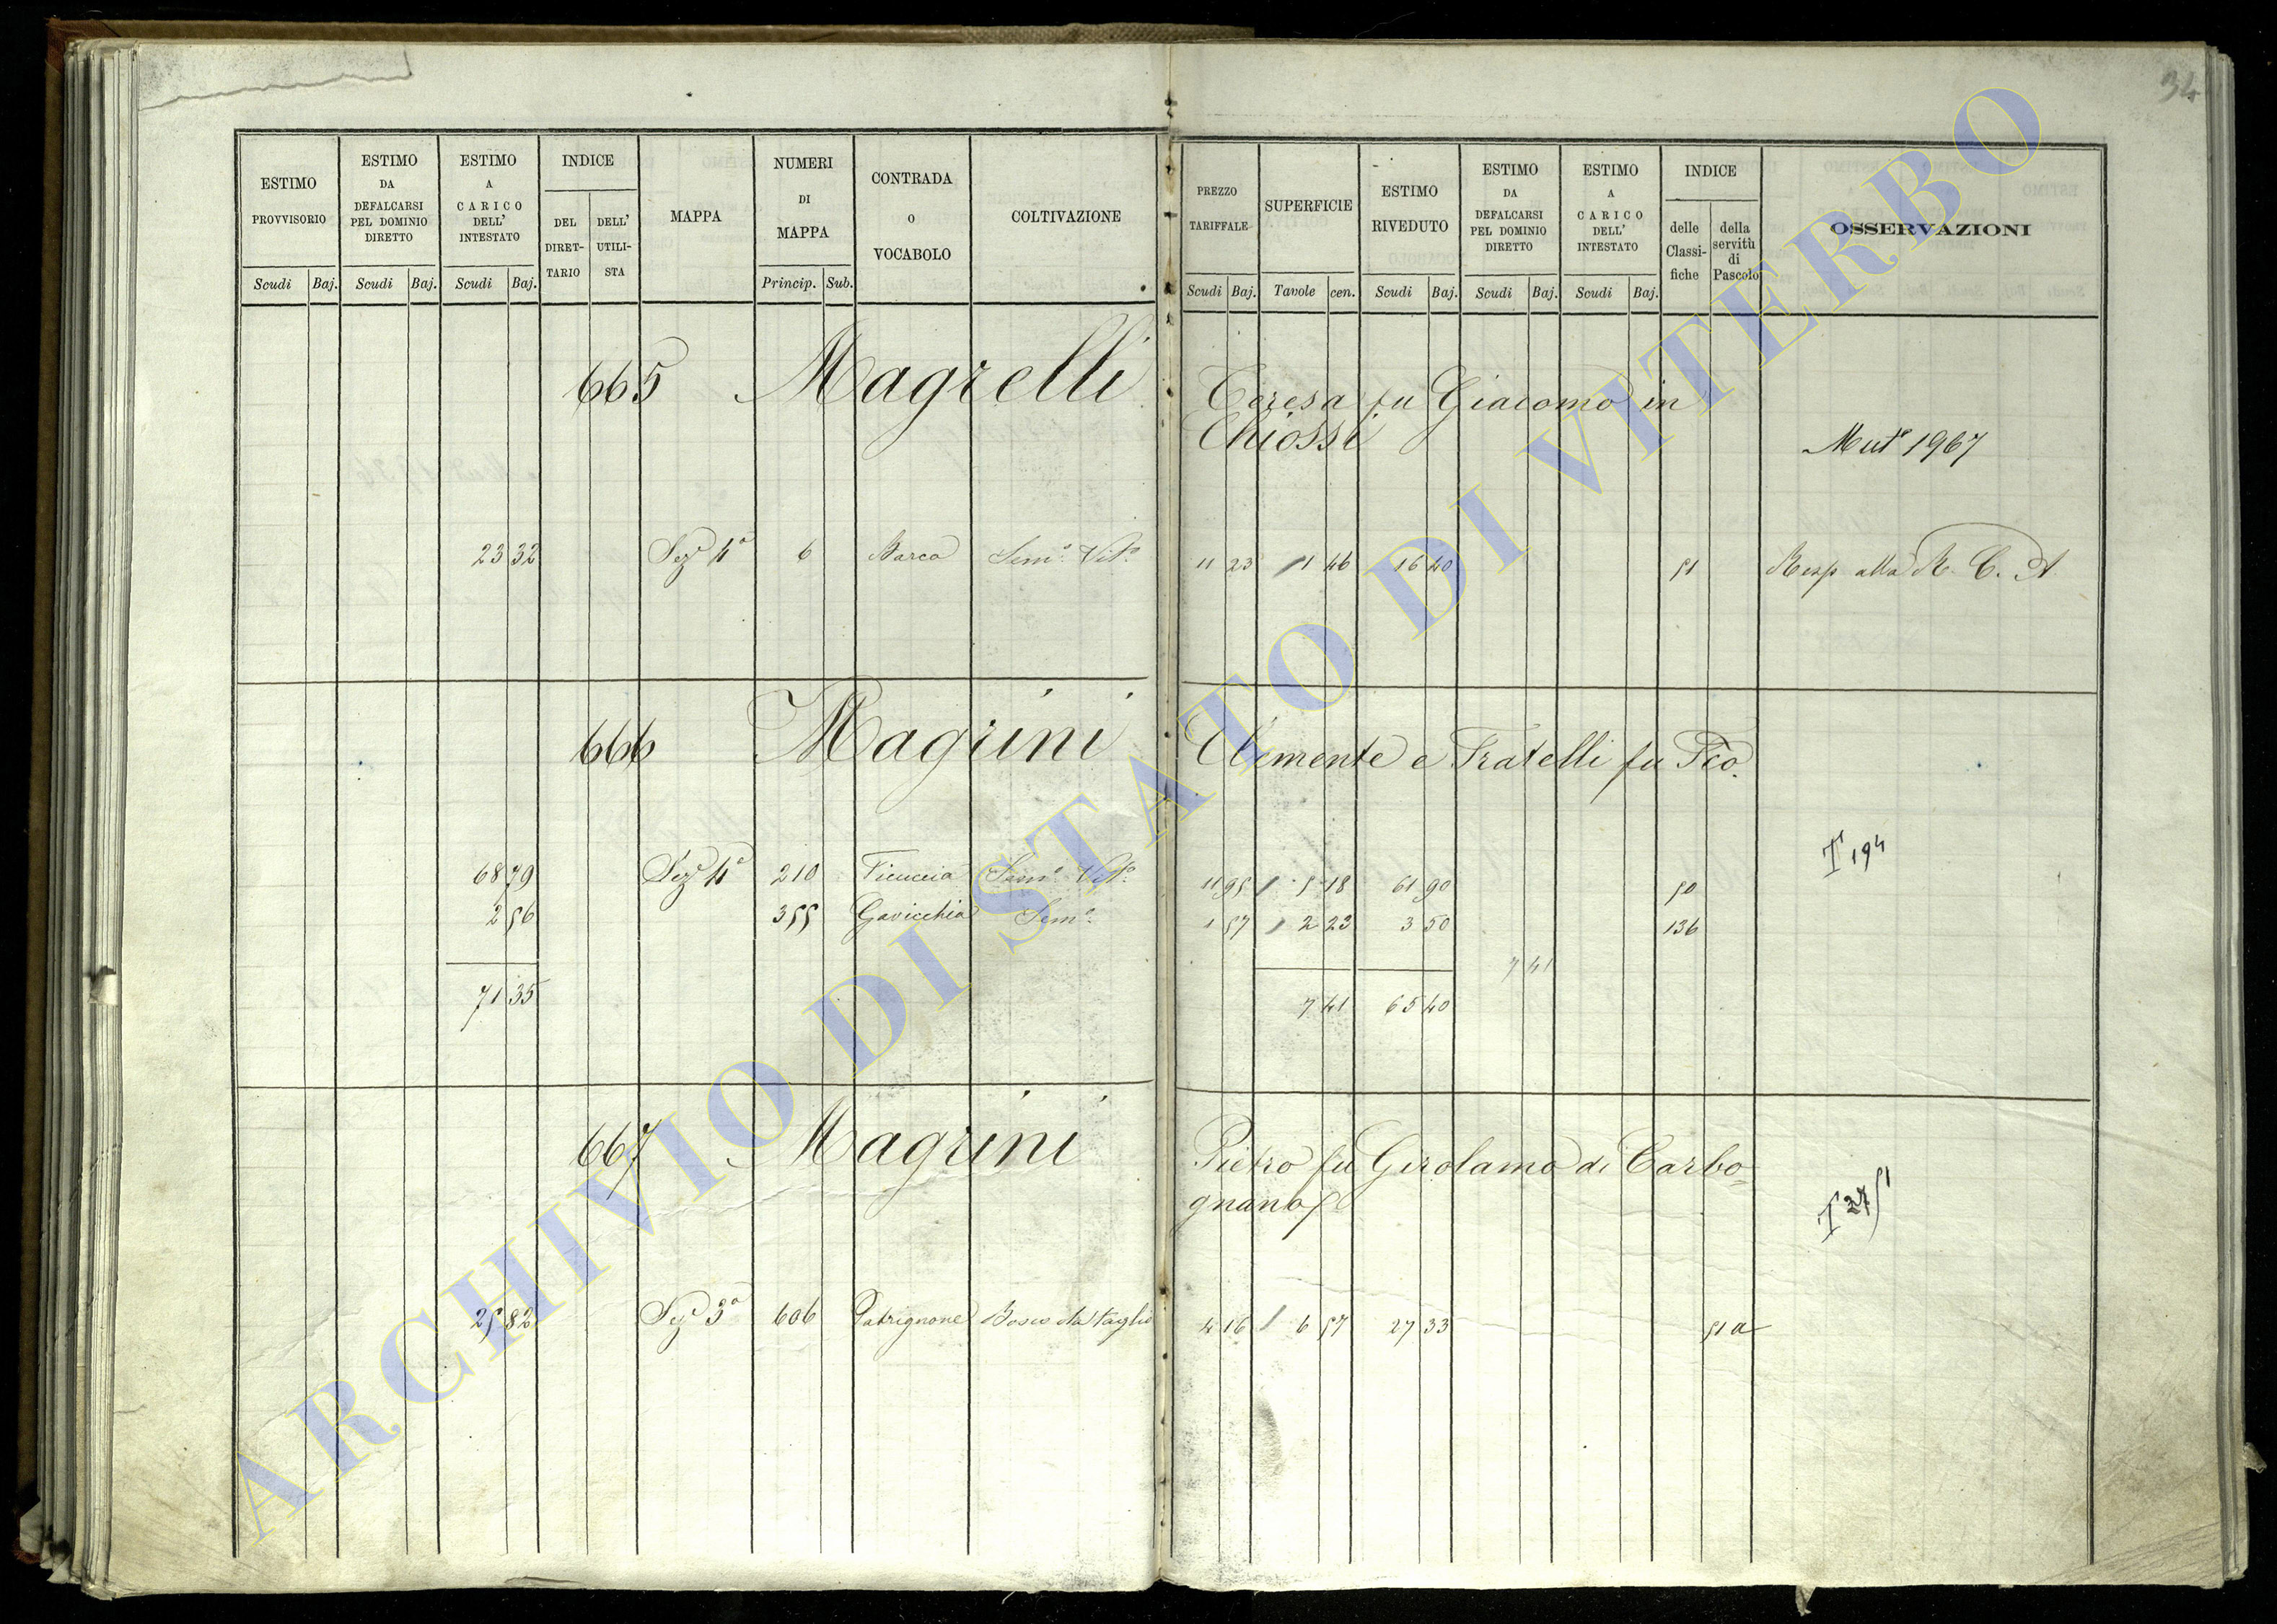 34
ESTIMO PROVVISORIO
Scudi Baj.
ESTIMO DA DEFALCARSI PEL DOMINIO DIRETTO
Scudi Baj.
ESTIMO A CARICO DELL' INTESTATO
Scudi Baj.
INDICE
DEL DIRET- TARIO
DELL' UTILI- STA
MAPPA
NUMERI DI MAPPA
Princip. Sub.
CONTRADA O VOCABOLO
COLTIVAZIONE
PREZZO TARIFFALE
Scudi Baj.
SUPERFICIE
Tavole cen.
ESTIMO RIVEDUTO
Scudi Baj.
ESTIMO DA DEFALCARSI PEL DOMINIO DIRETTO
Scudi Baj.
ESTIMO A CARICO DELL' INTESTATO
Scudi Baj.
INDICE
delle Classi- fiche
della servitù di Pascolo
OSSERVAZIONI
665 Magrelli Teresa fu Giacomo in
Chiossi
Mut.e 1967
23 32 Sez.e 4a 6 Barco Sem.o Vit.o 11 23 1 46 16 40 51 Resp. alla R. C. A.
666 Magrini Clemente e Fratelli fu Fco.
T 194
68 79 Sez.e 4a 210 Ficuccia Sem.o Vit.o 11 95 5 18 61 90 50
2 56 355 Gavicchia Sem.o 1 57 2 23 3 50 136
7 41
71 35 7 41 65 40
667 Magrini Pietro fu Girolamo di Carbo=
gnano
T 2751
25 82 Sez.e 3a 606 Patrignone Bosco da taglio 4 16 6 57 27 33 51 a
ARCHIVIO DI STATO DI VITERBO